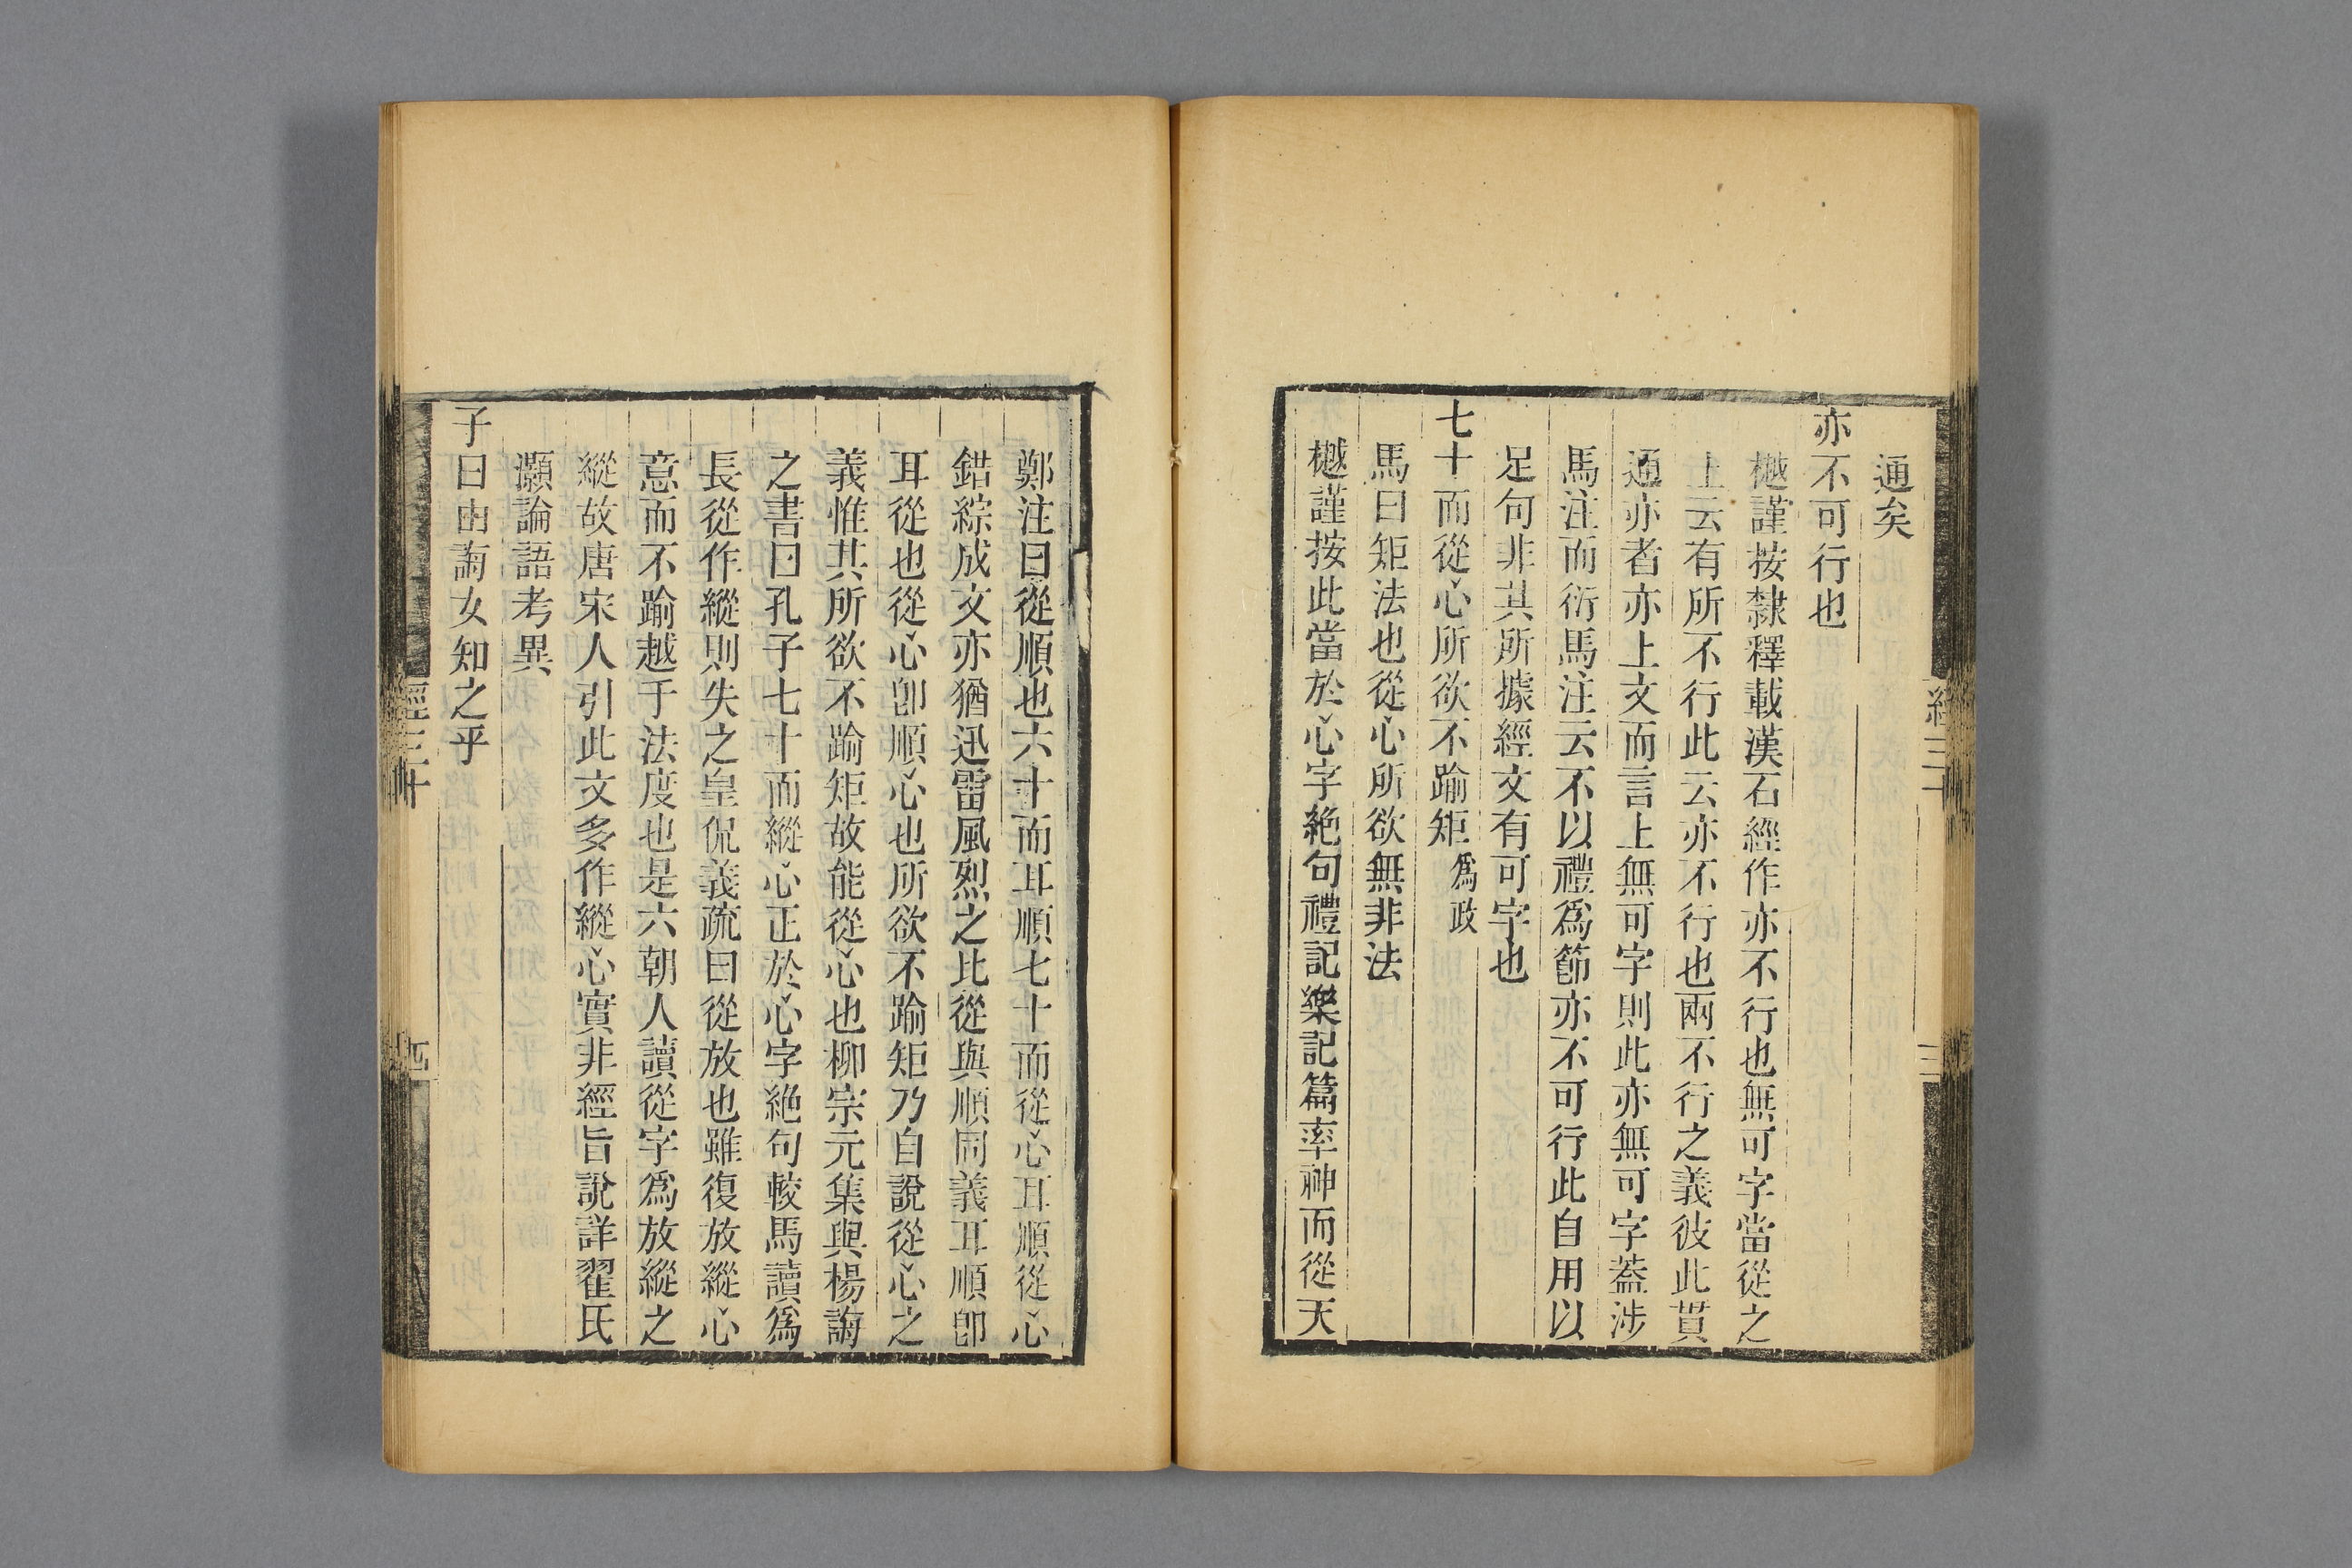 通矣
亦不可行也
樾謹按隸釋載漢石經作亦不行也無可字當從之
上云有所不行此云亦不行也兩不行之義彼此貫
通亦者亦上文而言上無可字則此亦無可字葢涉
馬注而衍馬注云不以禮爲節亦不可行此自用以
足句非其所據經文有可字也
七十而從心所欲不踰矩爲政
馬曰矩法也從心所欲無非法
樾謹按此當於心字絶句禮記樂記篇率神而從天
鄭注曰從順也六十而耳順七十而從心耳順從心
錯綜成文亦猶迅雷風烈之比從與順同義耳順卽
耳從也從心卽順心也所欲不踰矩乃自說從心之
義惟其所欲不踰矩故能從心也柳宗元集與楊誨
之書曰孔子七十而縱心正於心字絶句較馬讀爲
長從作縱則失之皇侃義疏曰從放也雖復放縱心
意而不踰越于法度也是六朝人讀從字爲放縱之
縱故唐宋人引此文多作縱心實非經旨說詳翟氏
灝論語考異
子曰由誨女知之乎
經三十
四